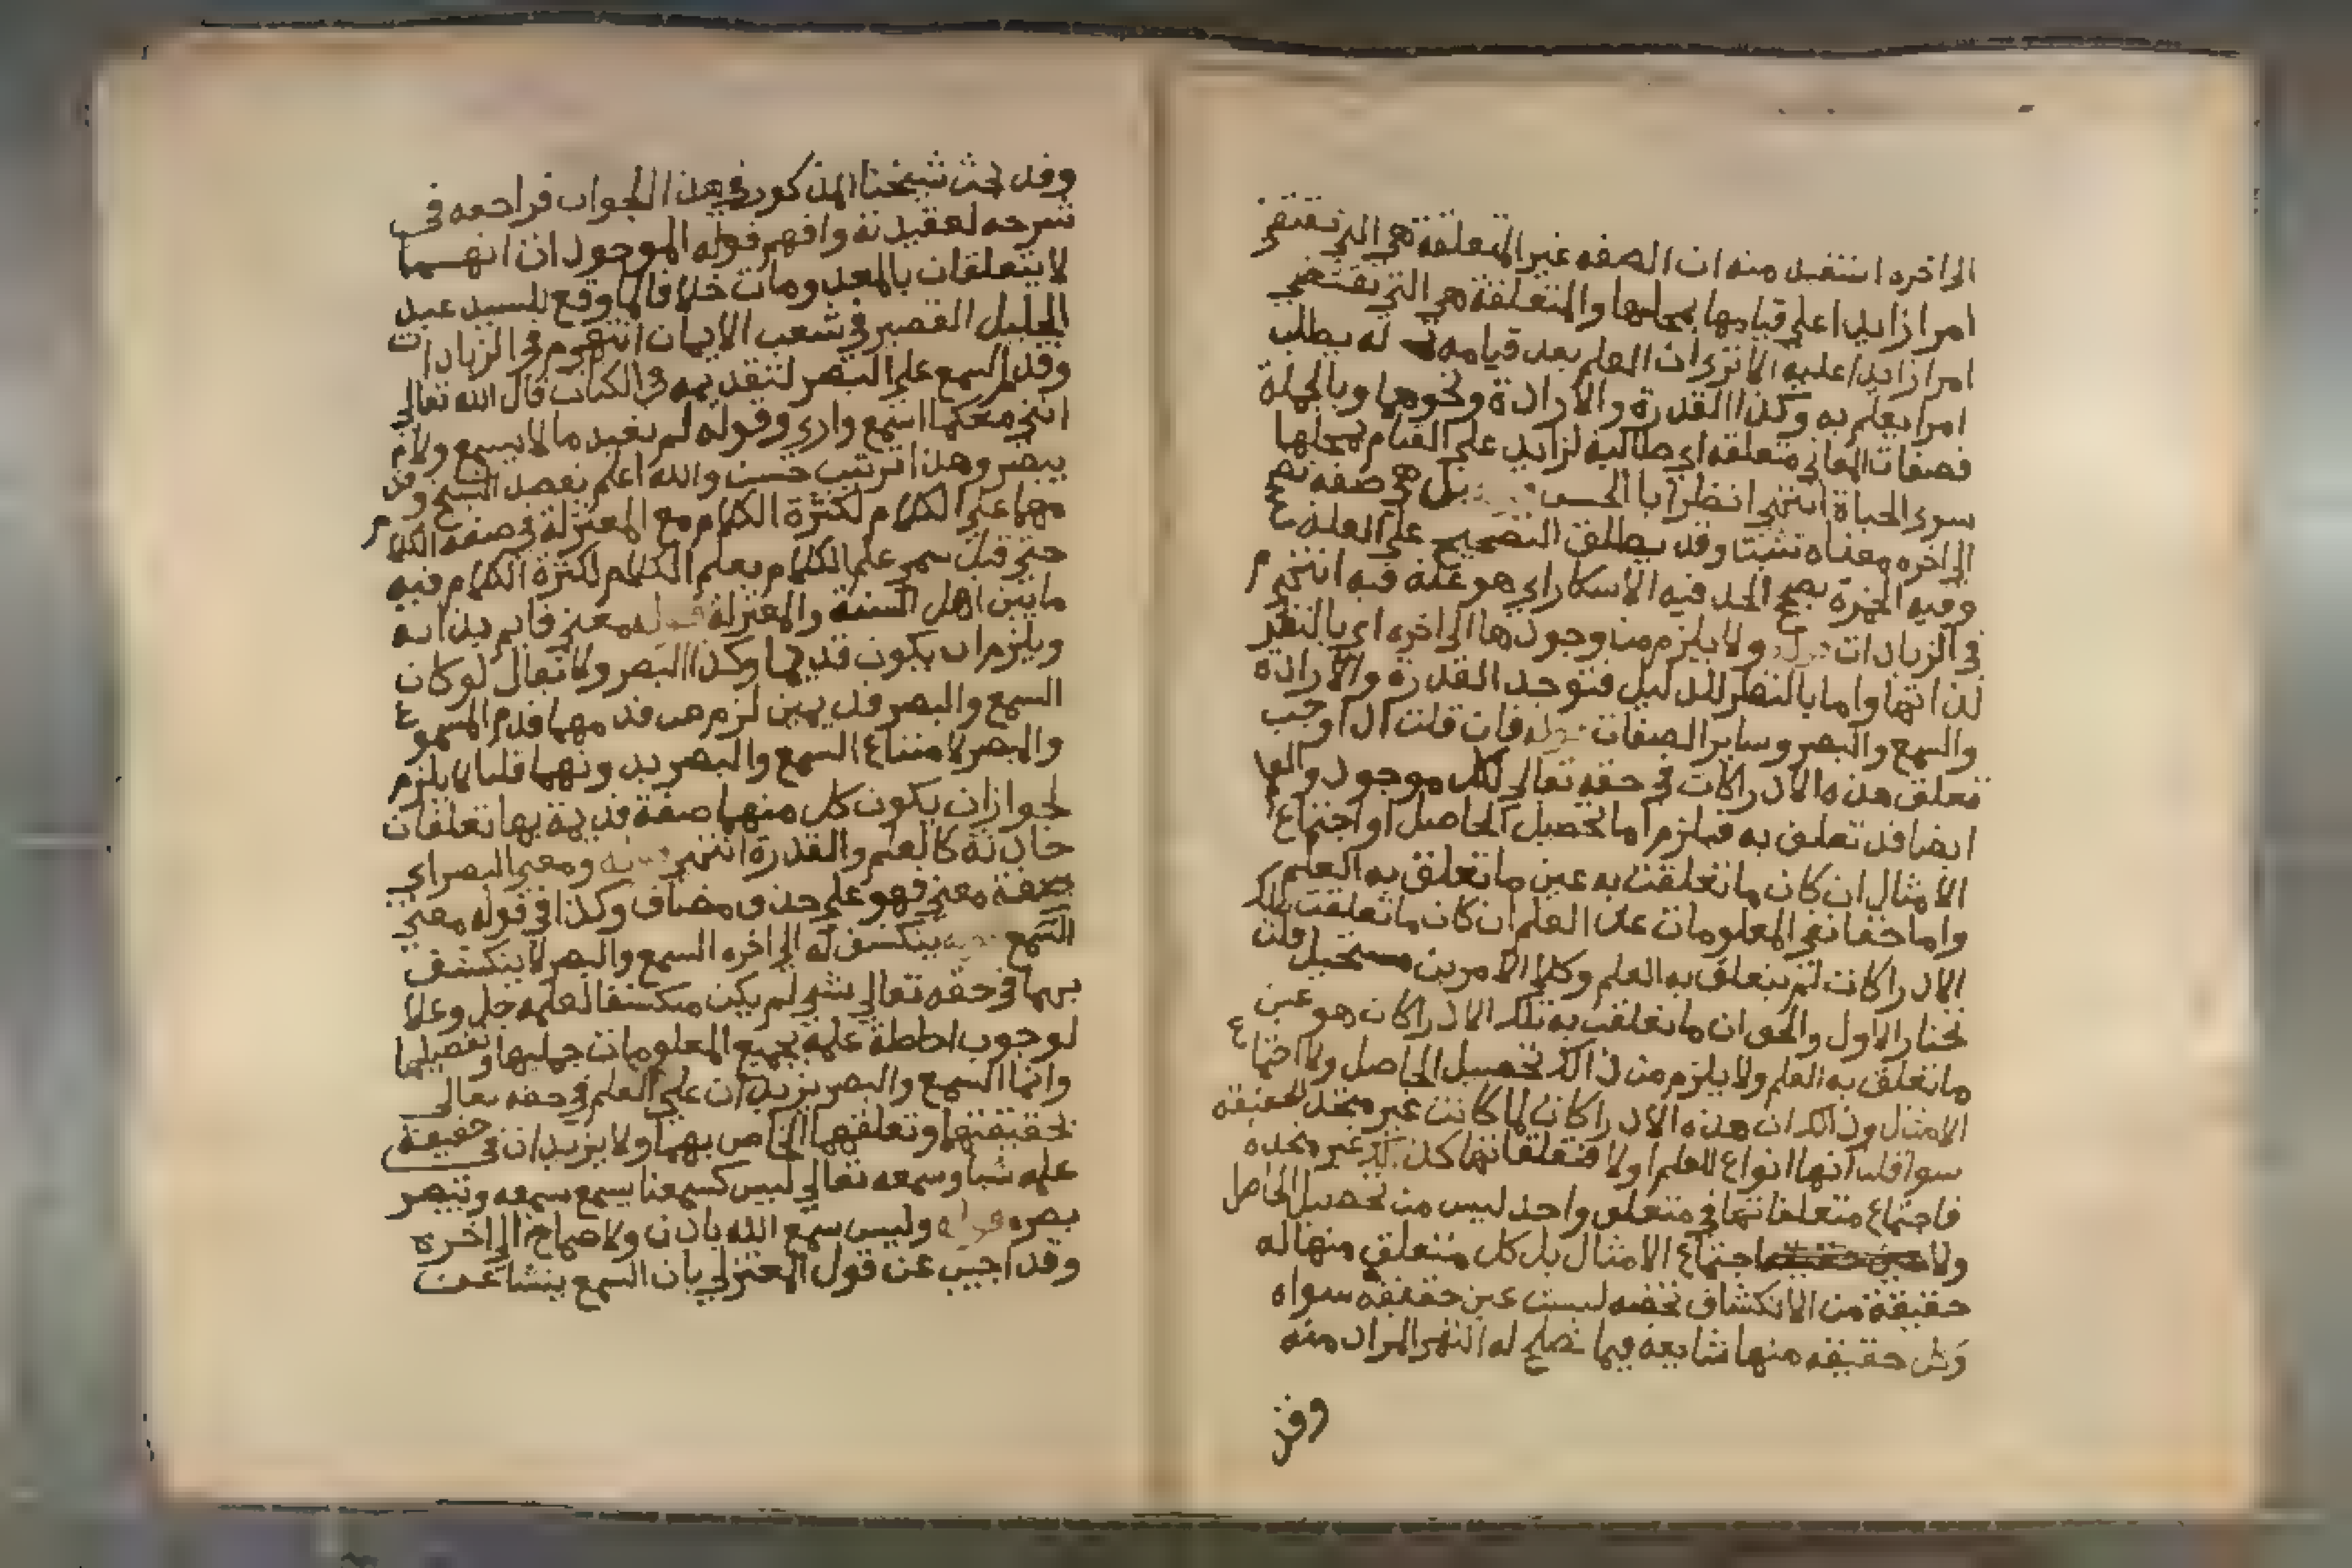 الى اخره استفيد منه ان الصفه غير المتعلقة هي التي تقتضي
امرا زايدا على قيامها بمحلها والمتعلقة هي التي تقتضي
امرا زايدا عليه الا ترى ان العلم بعد قيامه له يطلب
امرا يعلم به وكذا القدرة والارادة ونحوهما وبالجملة
فصفات المعاني متعلقه اي طالبة لزايد على القيام بمحلها
سوى الحياة انتهى انظر ابا الحسن بل هي صفه
الى اخره معناه تثبت وقد يطلق التصحيح على العلة
وفيه الخمرة يصح الحد فيه الاسكار اي هو علة فيه انتهى م
في الزيادات قوله ولا يلزم من وجودها الى اخره اي بالنظر
لذاتها واما بالنظر للدليل فتوجد القدرة والارادة
والسمع والبصر وساير الصفات قوله فان قلت اذا وجب
تعلق هذه الادراكات في حقه تعالى لكل موجود والعلم
ايضا قد تعلق به فيلزم اما تحصيل الحاصل او اجتماع
الامثال ان كان ما تعلقت به عين ما تعلق به العلم
واما خفا نفي المعلومات على العلم ان كان ما تعلقت تلك
الادراكات لم يتعلق به العلم وكلا الامرين مستحيل قلت
نختار الاول والحق ان ما تعلقت به تلك الادراكات هو عين
ما تعلق به العلم ولا يلزم من ذالك تحصيل الحاصل ولا اجتماع
الامثال وذالك ان هذه الادراكات لما كانت غير متحد الحقيقه
سوا قلنا انها انواع للعلم او لا فتعلقاتها كذلك غير متحده
فاجتماع متعلقاتها في متعلق واحد ليس من تحصيل الحاصل
ولا اجتماع الامثال بل كل متعلق منها له
حقيقة من الانكشاف تخصه ليست عين حقيقه سواه
وكل حقيقه منها شايعه فيما تصلح له انتهى المراد منه
وقد
وقد بحث شيخنا المذكور في هذا الجواب فراجعه في
شرحه لعقيدته وافهم قوله الموجود ان انهما
لا يتعلقان بالمعدومات خلافا لما وقع للسيد عبد
الجليل القصير في شعب الايمان انتهى م في الزيادات
وقدم السمع على البصر لتقديمه في الكتاب قال الله تعالى
انني معكما اسمع وارى وقوله لم تعبد ما لا يسمع ولا
يبصر وهذا ترتيب حسن والله اعلم بقصد الشيخ وقد
مهما على الكلام لكثرة الكلام مع المعتزلة في صفه الكلام
حتى قيل سمي علم الكلام بعلم الكلام لكثرة الكلام فيه
ما بين اهل السنة والمعتزلة قوله معنى قايم بذاته
ويلزم ان يكون قديما وكذا البصر ولا تقال لو كان
السمع والبصر قديمين لزم من قدمهما قدم المسموع
والبصر لامتناع السمع والبصر بدونهما قلنا لا يلزم
لجواز ان يكون كل منهما صفة قديمة بها تعلقات
حادثة كالعلم والقدرة انتهى قوله ومعنى البصر اي
صفة معنى فهو على حذف مضاف وكذا في قوله معنى
السمع قوله ينكشف له الى اخره السمع والبصر لا ينكشف
بهما في حقه تعالى شي لم يكن منكشفا لعلمه جل وعلا
لوجوب احاطة علمه بجميع المعلومات جمليها وتفصيلها
وانما السمع والبصر يزيدان على العلم في حقه تعالى
بحقيقتهما وتعلقهما الخاص بهما ولا يزيدان في حقيقة
علمه شيا وسمعه تعالى ليس كسمعنا يسمع سمعه وتبصر
بصره قوله وليس سمع الله باذن ولا صماخ الى اخره
وقد اجيب عن قول المعتزلي بان السمع ينشا عن